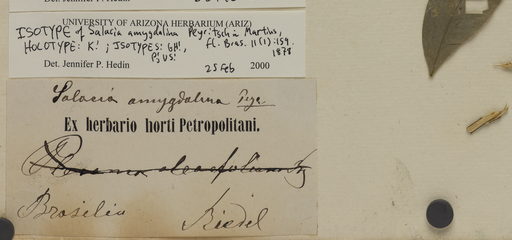 Det. Jennifer P. Hedin
UNIVERSITY OF ARIZONA HERBARIUM (ARIZ)
ISOTYPE of Salacia amygdalina Peyritsch in Martius,
HOLOTYPE: K! ; ISOTYPES: GH!, Fl. Bras. 11(1):159.
P; US! 1878
Det. Jennifer P. Hedin 25 Feb 2000
Salacia amygdalina Peyr
Ex herbario horti Petropolitani.
Brasilia Riedel